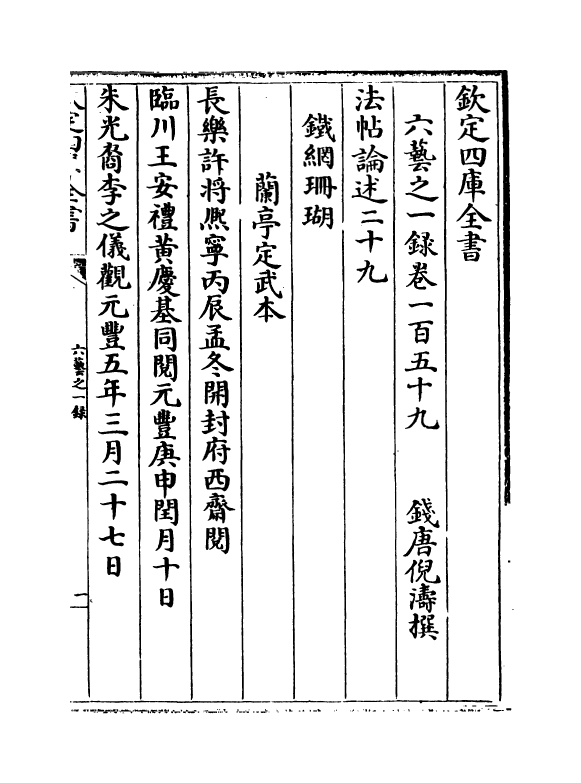 欽定四庫全書
六藝之一録卷一百五十九
錢唐倪濤撰
法帖論述二十九
鐵網珊瑚
蘭亭定武本
長樂許將熈寧丙辰孟冬開封府西齋閱
臨川王安禮黄慶基同閱元豐庚申閏月十日
朱光裔李之儀觀元豐五年三月二十七日
六藝之一録